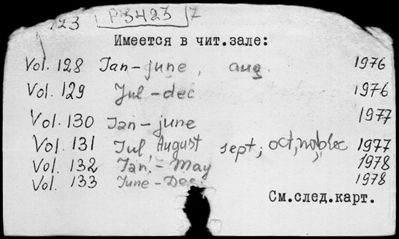 123 P3423 Z
Имеется в чит.зале:
Vol. 128 Jan-june, aug. 1976
Vol. 129 Jul-dec 1976
Vol. 130 Jan-june 1977
Vol. 131 Jul, August sept, oct, nov, dec 1977
Vol. 132 Jan,-May 1978
Vol. 133 June-Dec 1978
См.след.карт.